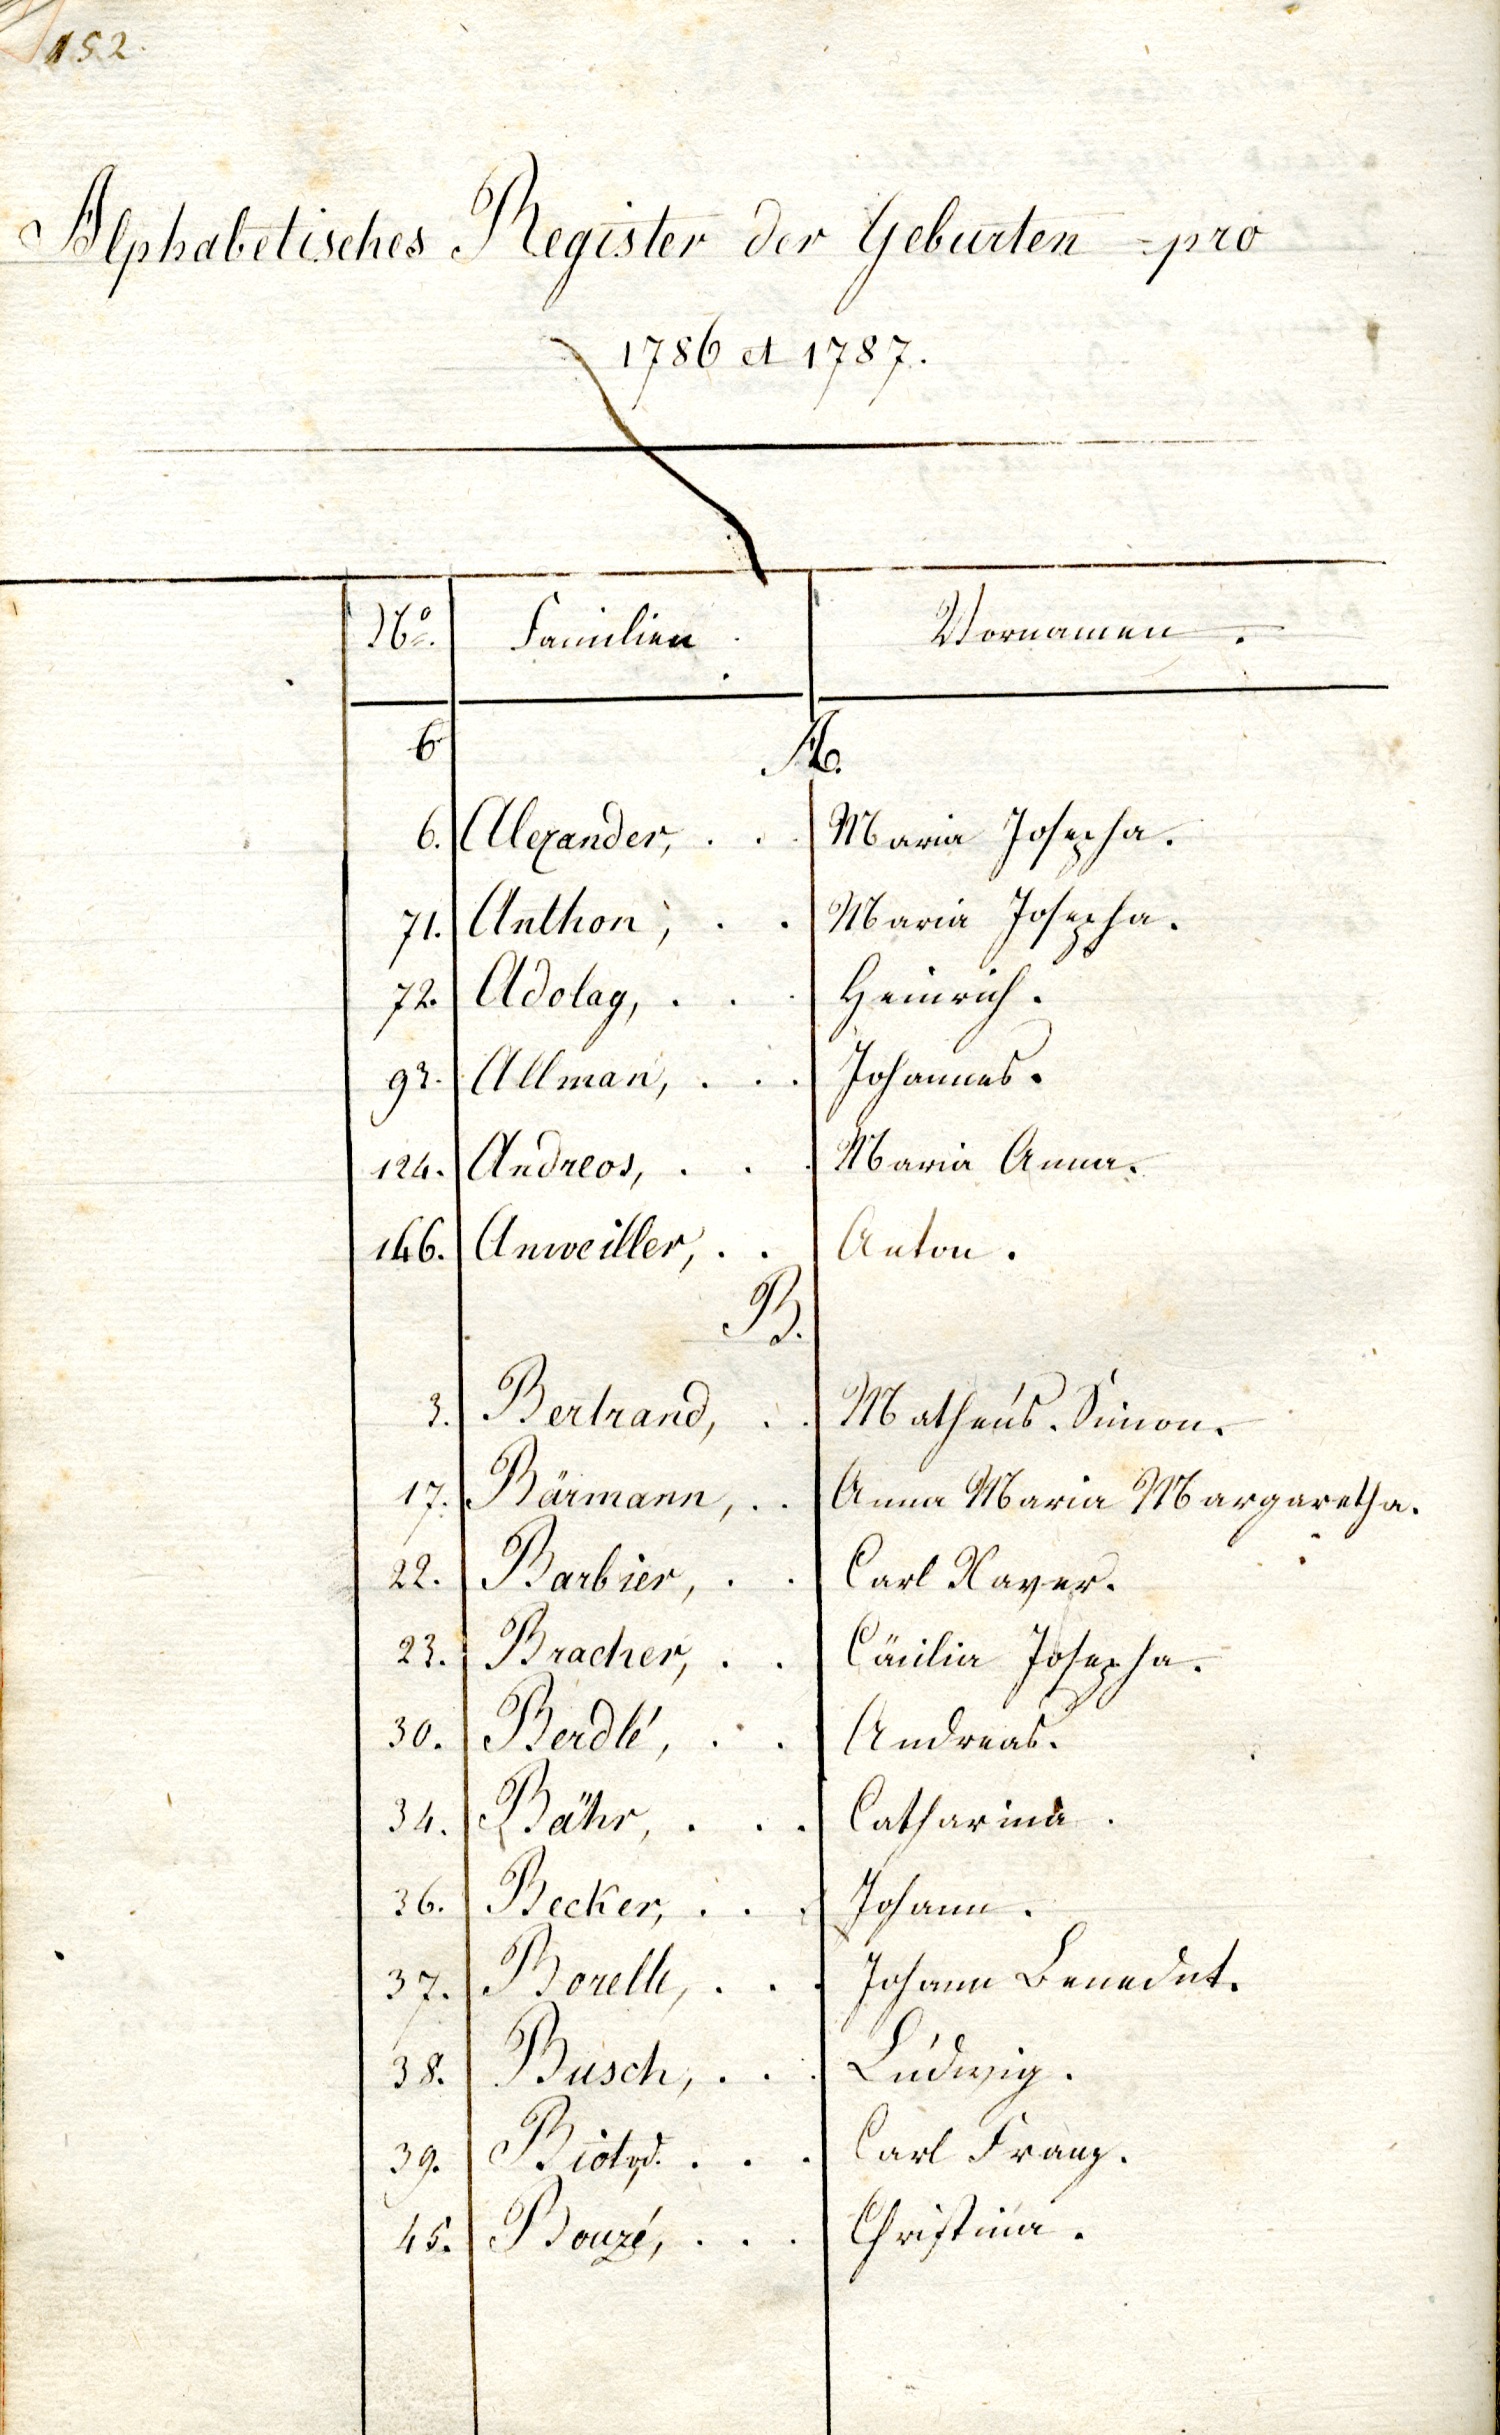 152.
Alphabetisches Register der Geburten pro
1786 et 1787.
No. Familien Vornamen.
6 A.
6. Alexander, . . . Maria Josepha.
71. Anthon, . . Maria Josepha.
72. Adolay, . . . Heinrich.
93. Allman, . . . Johannes.
124. Andreos, . . . Maria Anna.
146. Anweiller, . . Anton.
B.
3. Bertrand, . . Matheus. Simon.
17. Bärmann, . . Anna Maria Margaretha.
22. Barbier, . . Carl Xaver.
23. Bracher, . . Cäcilia Josepha.
30. Berdlé, . . Andreas.
34. Bähr, . . . Catharina.
36. Becker, . . . Johann.
37. Borelle, . . . Johann Benedict.
38. Busch, . . . Ludwig.
39. . . . Carl Franz.
45. Bouzé, . . . Christina.